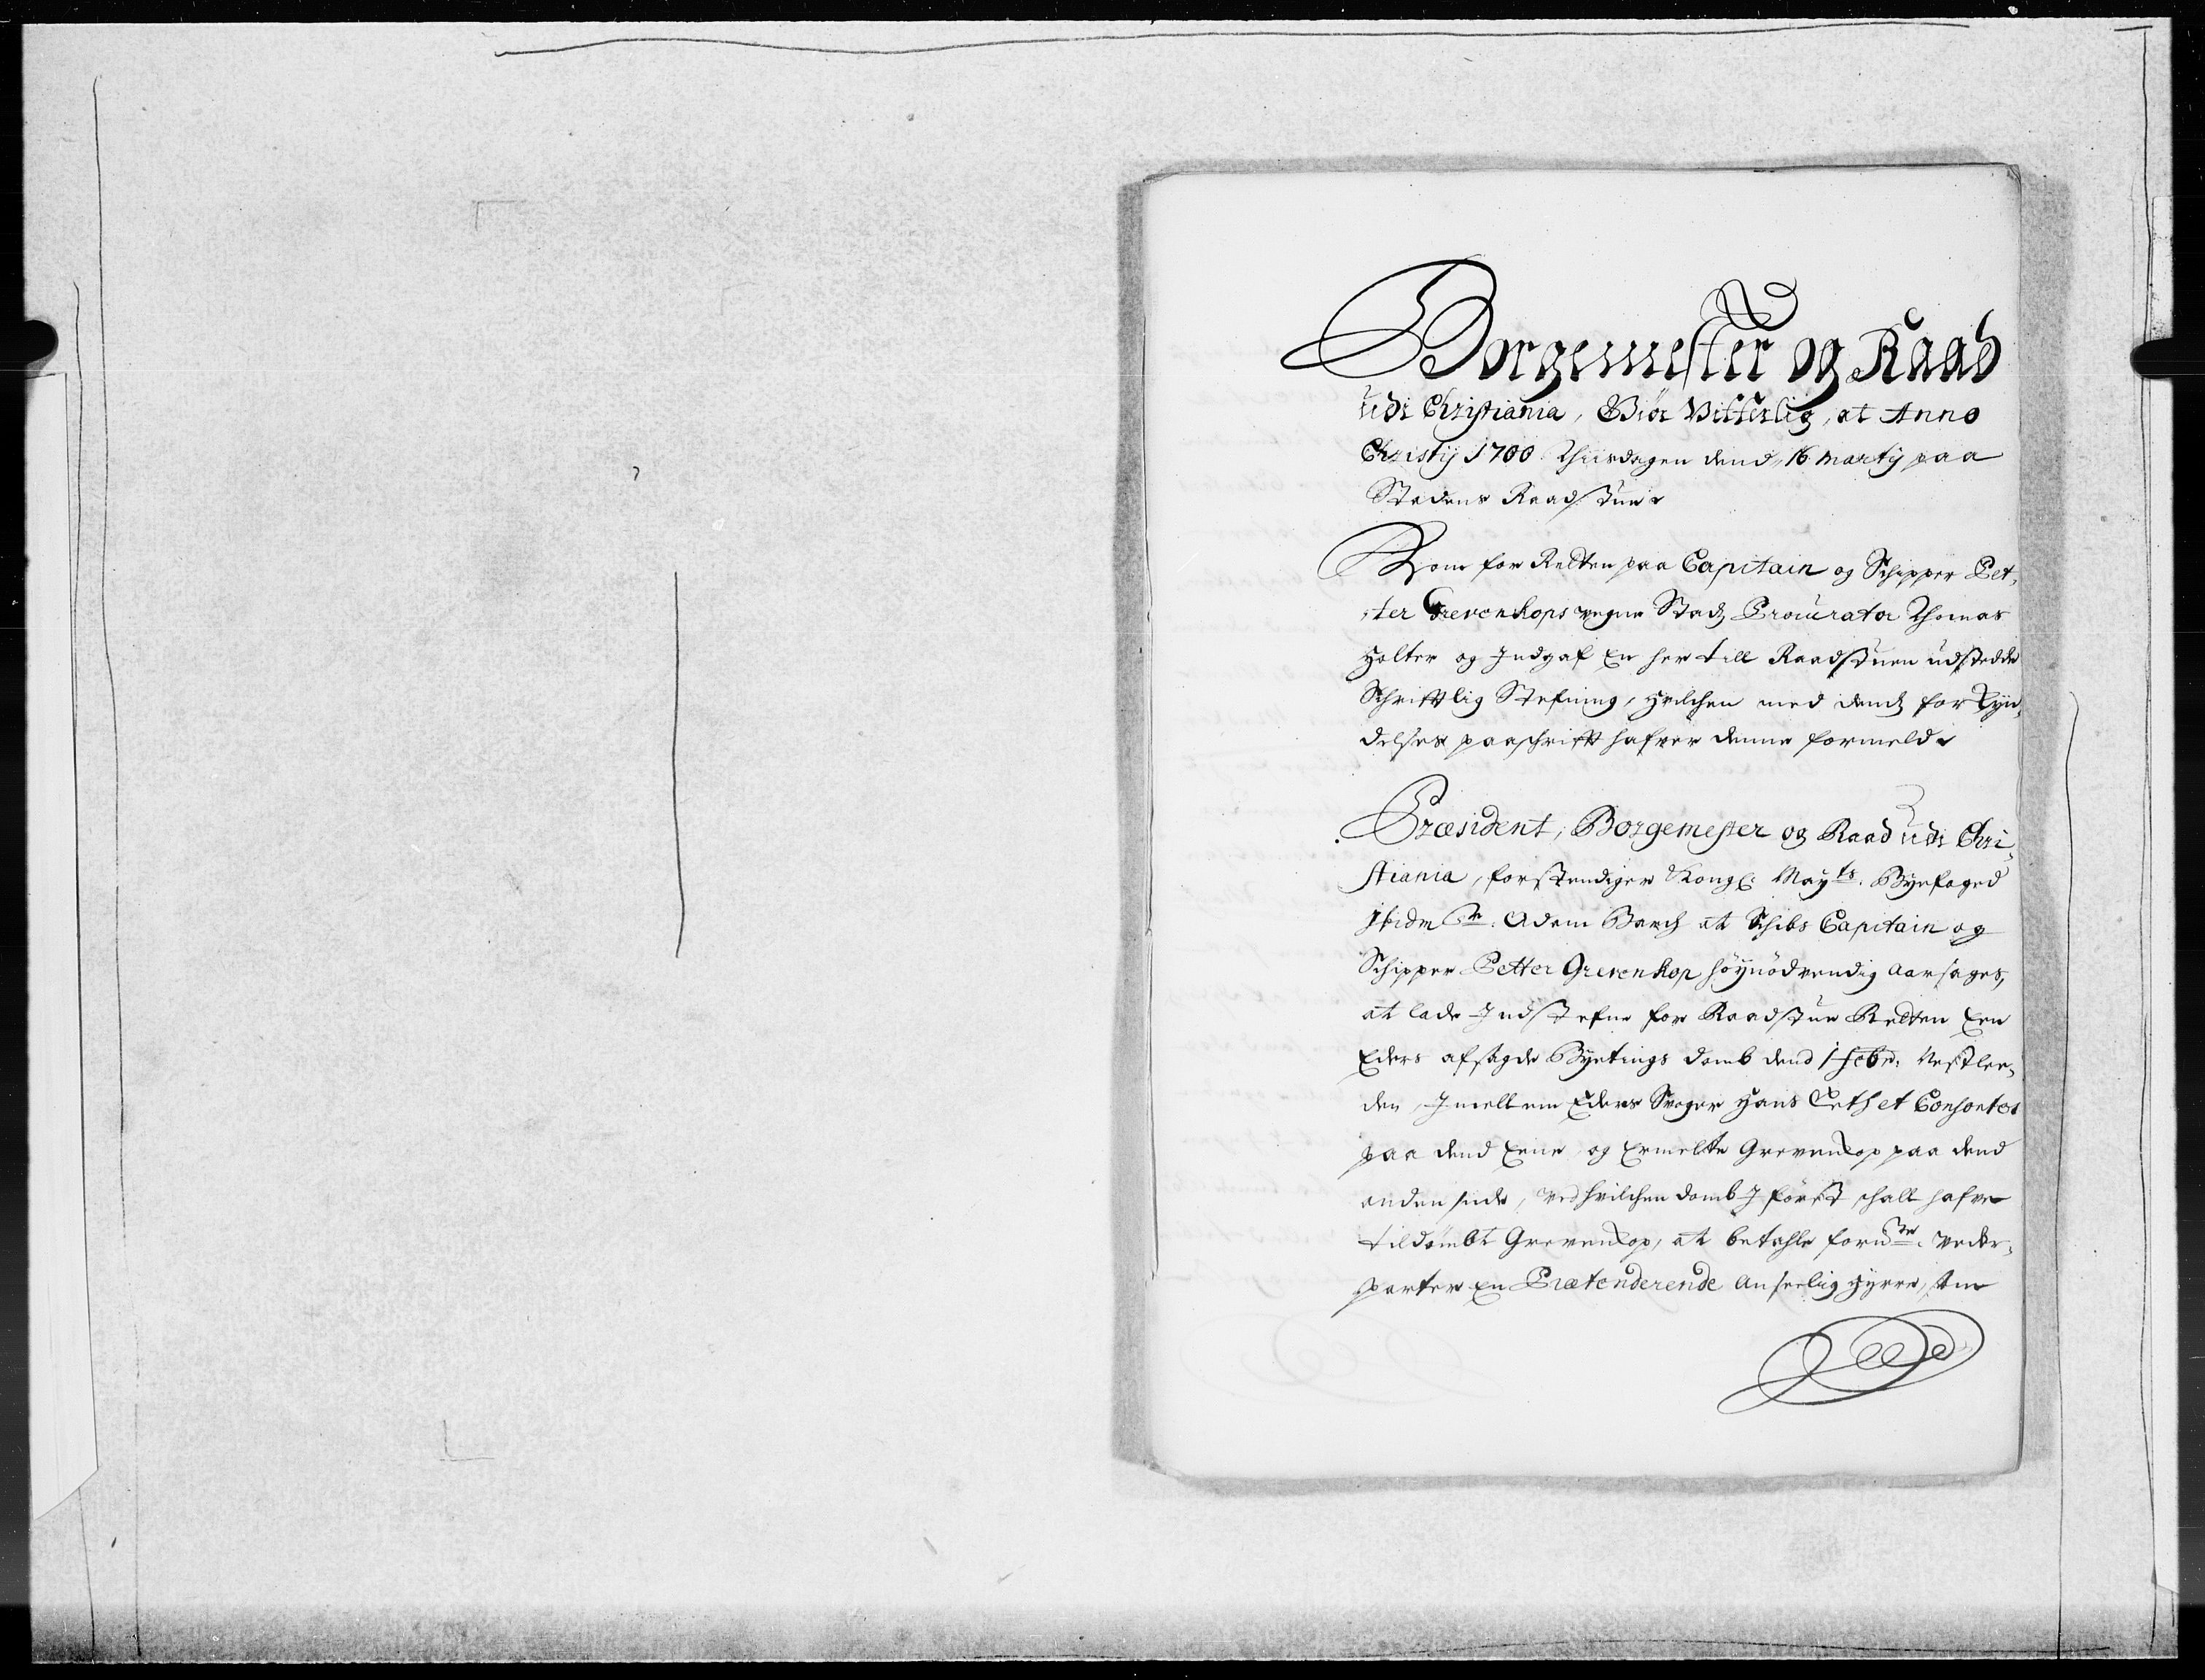 Borgemester og Raad
udi Christiania, Giör Vitterlig, at Anno
Christij 1700 Thiisdagen dend 16 Martij paa
Stadens Raadstue
Kom for Retten paa Capitain og Schipper Pet,
,ter Grevenkops vegne Stads Procurator Thomas
Holter og Indgaf En her till Raadstuen udstedde
Schrifftlig Stefning, hvilchen med dends forkyn,
delses paaschrifft hafver denne formeld
Præsident, Borgemester og Raad udi Chri,
stiania, forstendiger Kongl: Mayts. Byefoged
Ibidm Sr. Adam Barch at Schibs Capitain og
Schipper Petter Grevenkop höynödvendig aarsages,
at lade Indstefne for Raadstue Retten Een
Eders afsagde Byetings domb dend 1 Febr: Nestlee,
den, Imellem Eders Svoger Hans Leth et Consorter
paa dend Eene og Ermelte Grevenkop paa dend
anden side, ved hvilchen domb I först schall hafve
tildömbt Grevenkop, at betahle fornte. veder,
parter En Prætenderende anseelig hyrre,